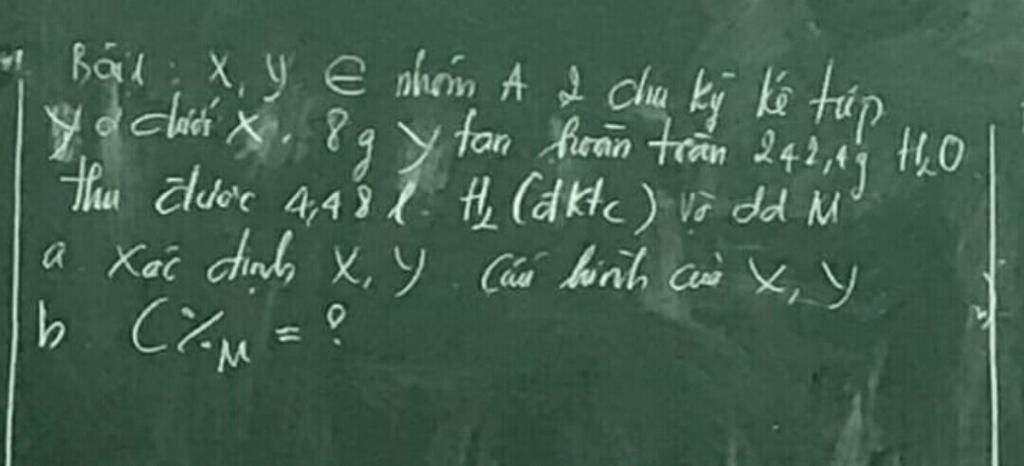 Bài 1: X, Y ∈ nhóm A 2 chu kỳ kế tiếp
Y ở dưới X. 8g Y tan hoàn toàn 242,4g H₂O
thu được 4,48 l H₂ (đktc) và dd M
a. Xác định X, Y. Cấu hình của X, Y
b C%M = ?